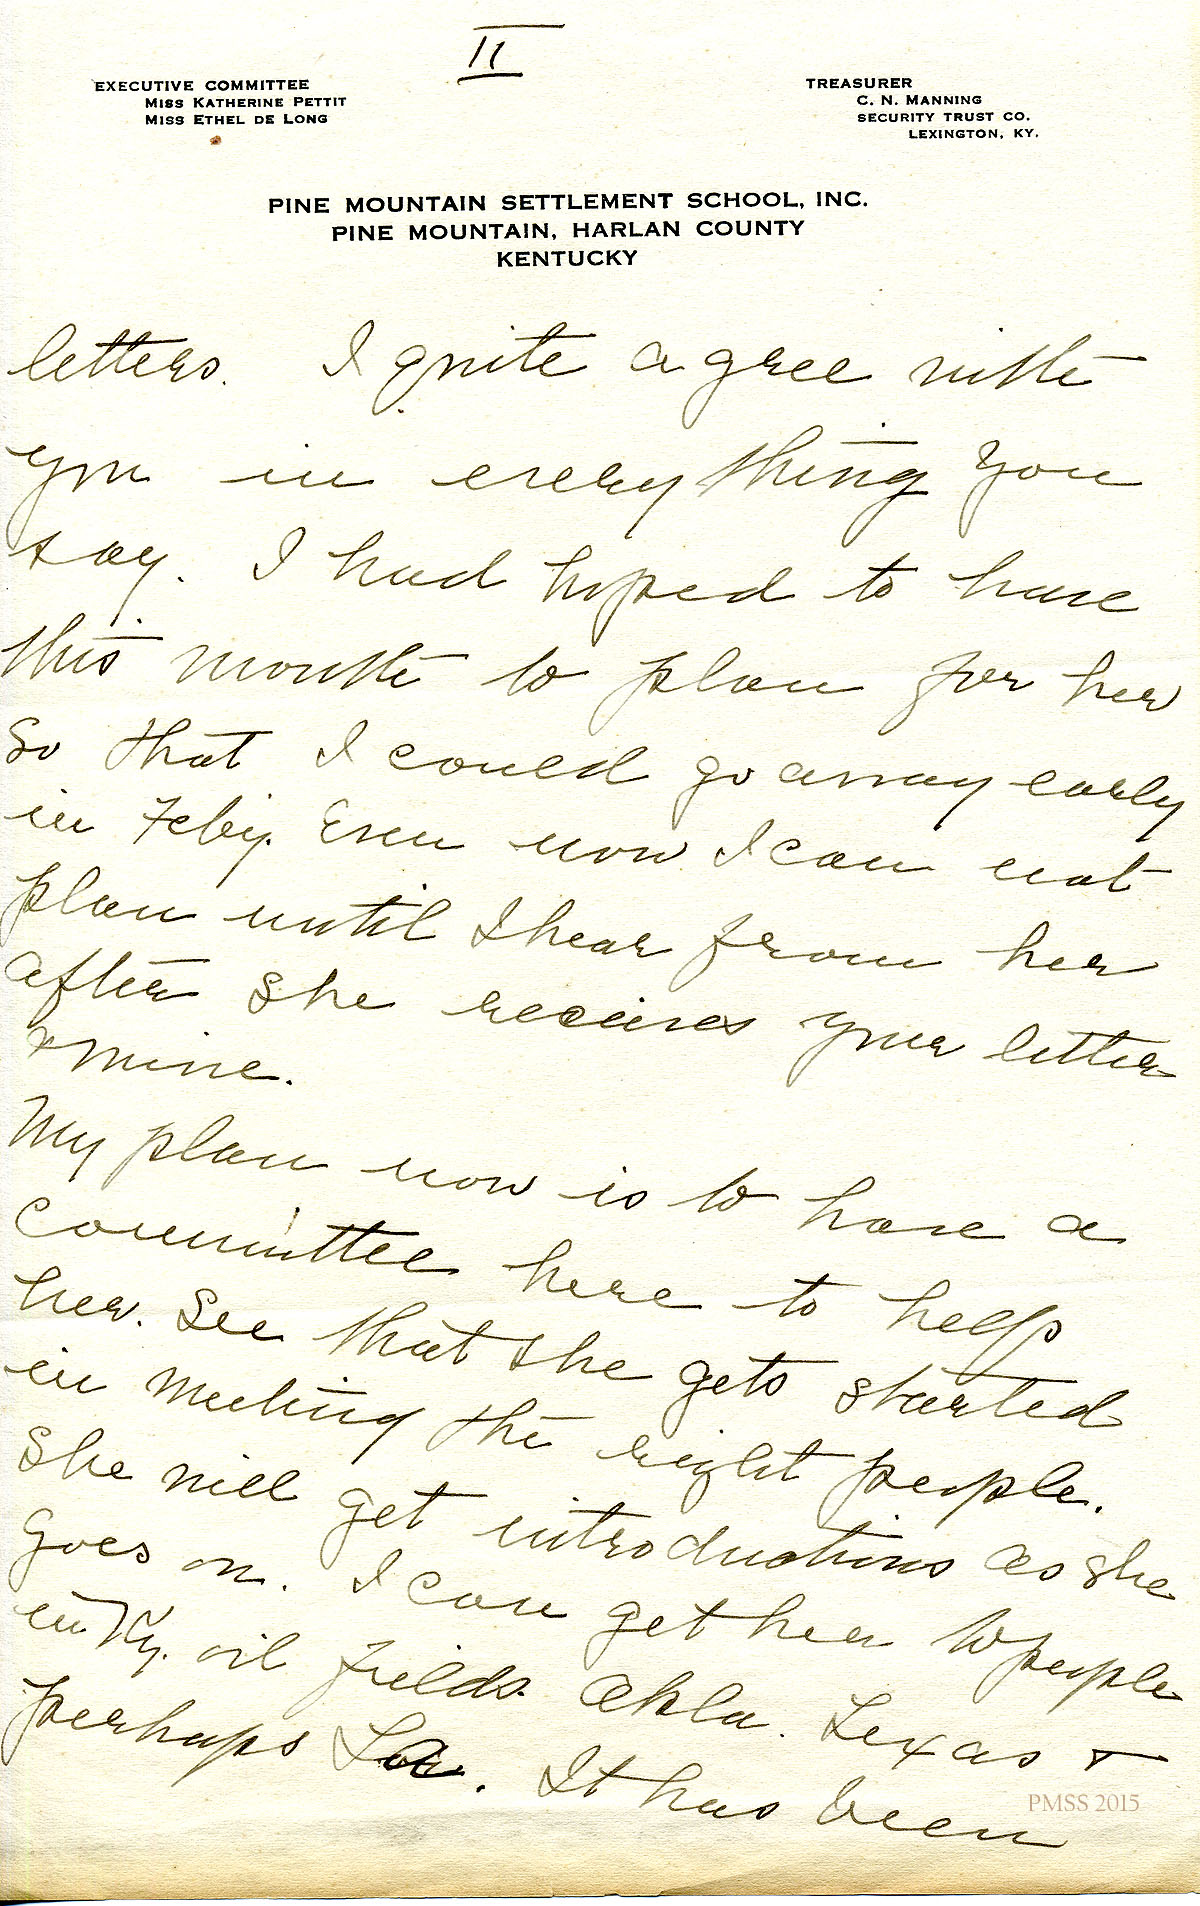 II
EXECUTIVE COMMITTEE
MISS KATHERINE PETTIT
MISS ETHEL DE LONG
TREASURER
C. N. MANNING
SECURITY TRUST CO.
LEXINGTON, KY.
PINE MOUNTAIN SETTLEMENT SCHOOL, INC.
PINE MOUNTAIN, HARLAN COUNTY
KENTUCKY
letters. I quite agree with
you in every thing you
say. I had hoped to have
this month to plan for her
so that I could go away early
in Feby. Even now I can not
plan until I hear from her
after she receives your letter
& mine.
My plan now is to have a
committee here to help
her. See that she gets started
in meeting the right people.
She will get introductions as she
goes on. I can get her to people
in Ky. oil fields. Okla. Texas &
perhaps La. It has been
PMSS 2015